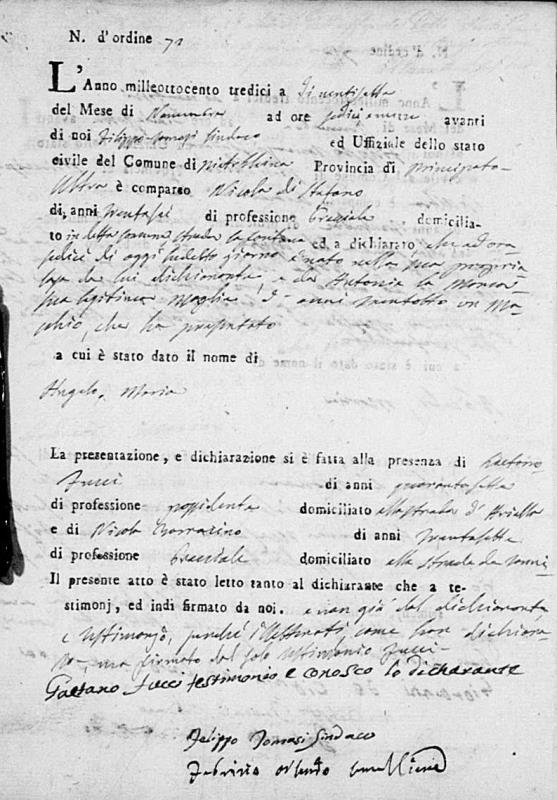 N. d'ordine 71
L'Anno milleottocento tredici a diventisette
del Mese di Novembre ad ore sedici e mezza avanti
di noi Filippo Tomasi Sindaco ed Uffiziale dello stato
civile del Comune di Provincia di Principato
Ultra è comparso Nicola di Stefano
di anni trentasei di professione Bracciale domicilia-
to in detto comune strada la fontana ed a dichiarato, che ad ora
sedici di oggi sudetto giorno è nato nella sua propria
casa da lui dichiarante, e da Antonia la Monaca
sua legittima Moglie d'anni trentotto un Ma-
schio, che ha presentato
a cui è stato dato il nome di
Angelo, Maria
La presentazione, e dichiarazione si è fatta alla presenza di Gaetano
Zucci di anni quarantasette
di professione possidente domiciliato alla strada
e di Nicola di anni trentasette
di professione Bracciale domiciliato alla strada
Il presente atto è stato letto tanto al dichiarante che a te-
stimonj, ed indi firmato da noi. e non già dal dichiarante
e testimonio, perché illetterati come han dichiara-
to ma firmato dal solo testimonio Zucci
Gaetano Zucci testimonio e conosco lo dicharante
Felippo Tomasi Sindaco
Fabrizio Orlando